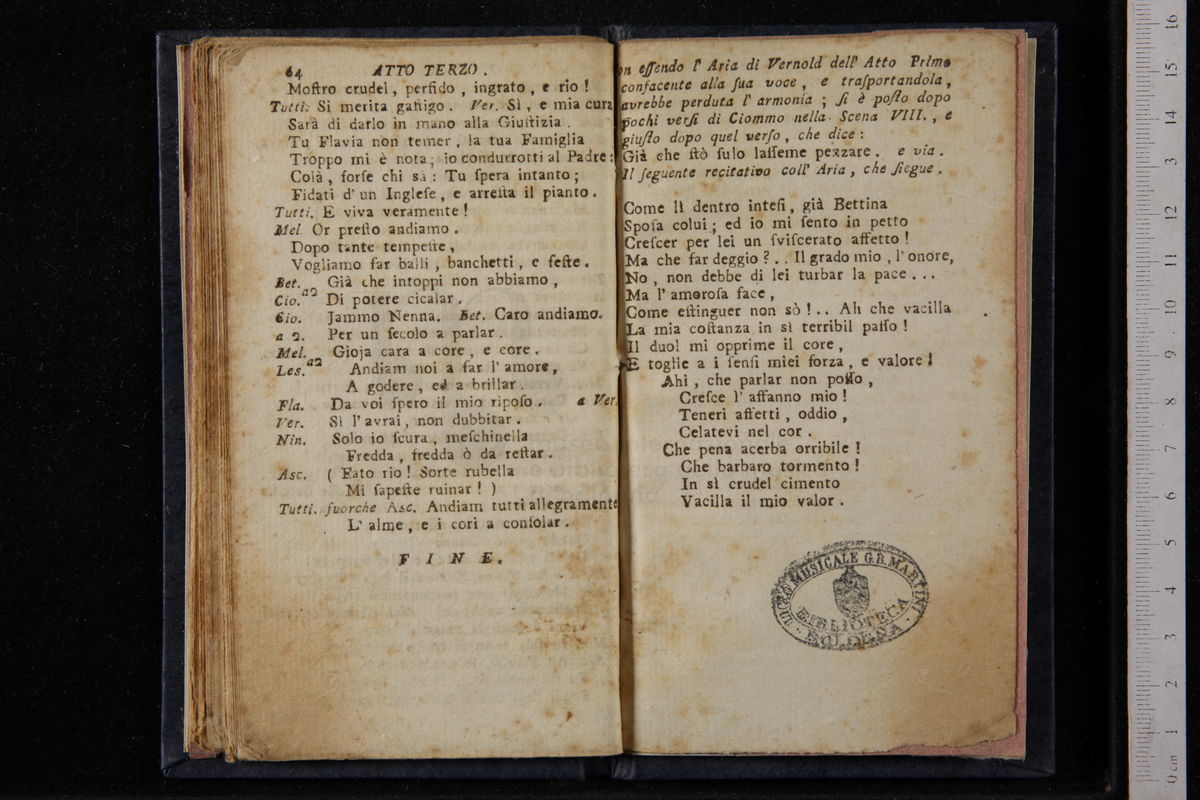 64 ATTO TERZO.
Moſtro crudel, perfido, ingrato, e rio!
Tutti. Si merita gaſtigo. Ver. Sì, e mia cura
Sarà di darlo in mano alla Giuſtizia.
Tu Flavia non temer, la tua Famiglia
Troppo mi è nota; io condurrotti al Padre:
Colà, forſe chi sà: Tu ſpera intanto;
Fidati d' un Ingleſe, e arreſta il pianto.
Tutti. E viva veramente!
Mel. Or preſto andiamo.
Dopo tante tempeſte,
Vogliamo far balli, banchetti, e feſte.
Bet. Già che intoppi non abbiamo,
Cio. a2 Di potere cicalar.
Cio. Jammo Nenna. Bet. Caro andiamo.
a 2. Per un ſecolo a parlar.
Mel. Gioja cara a core, e core.
Les. a2 Andiam noi a far l' amore,
A godere, ed a brillar.
Fla. Da voi ſpero il mio ripoſo. a Ver.
Ver. Sì l' avrai, non dubbitar.
Nin. Solo io ſcura, meſchinella
Fredda, fredda ò da reſtar.
Asc. ( Fato rio! Sorte rubella
Mi ſapeſte ruinar! )
Tutti. fuorche Asc. Andiam tutti allegramente
L' alme, e i cori a conſolar.
FINE.
on eſſendo l' Aria di Vernold dell' Atto Primo
confacente alla ſua voce, e traſportandola,
avrebbe perduta l' armonia; ſi è poſto dopo
pochi verſi di Ciommo nella Scena VIII., e
giuſto dopo quel verſo, che dice:
Già che ſtò ſulo laſſeme penzare. e via.
Il ſeguente recitativo coll' Aria, che ſiegue.
Come lì dentro inteſi, già Bettina
Spoſa colui; ed io mi ſento in petto
Creſcer per lei un ſviſcerato affetto!
Ma che far deggio?.. Il grado mio, l' onore,
No, non debbe di lei turbar la pace...
Ma l' amoroſa face,
Come eſtinguer non sò!.. Ah che vacilla
La mia coſtanza in sì terribil paſſo!
Il duol mi opprime il core,
E toglie a i ſenſi miei forza, e valore!
Ahi, che parlar non poſſo,
Creſce l' affanno mio!
Teneri affetti, oddio,
Celatevi nel cor.
Che pena acerba orribile!
Che barbaro tormento!
In sì crudel cimento
Vacilla il mio valor.
LICEO MUSICALE G.B. MARTINI
BIBLIOTECA
- BOLOGNA -
0 cm 1 2 3 4 5 6 7 8 9 10 11 12 13 14 15 16